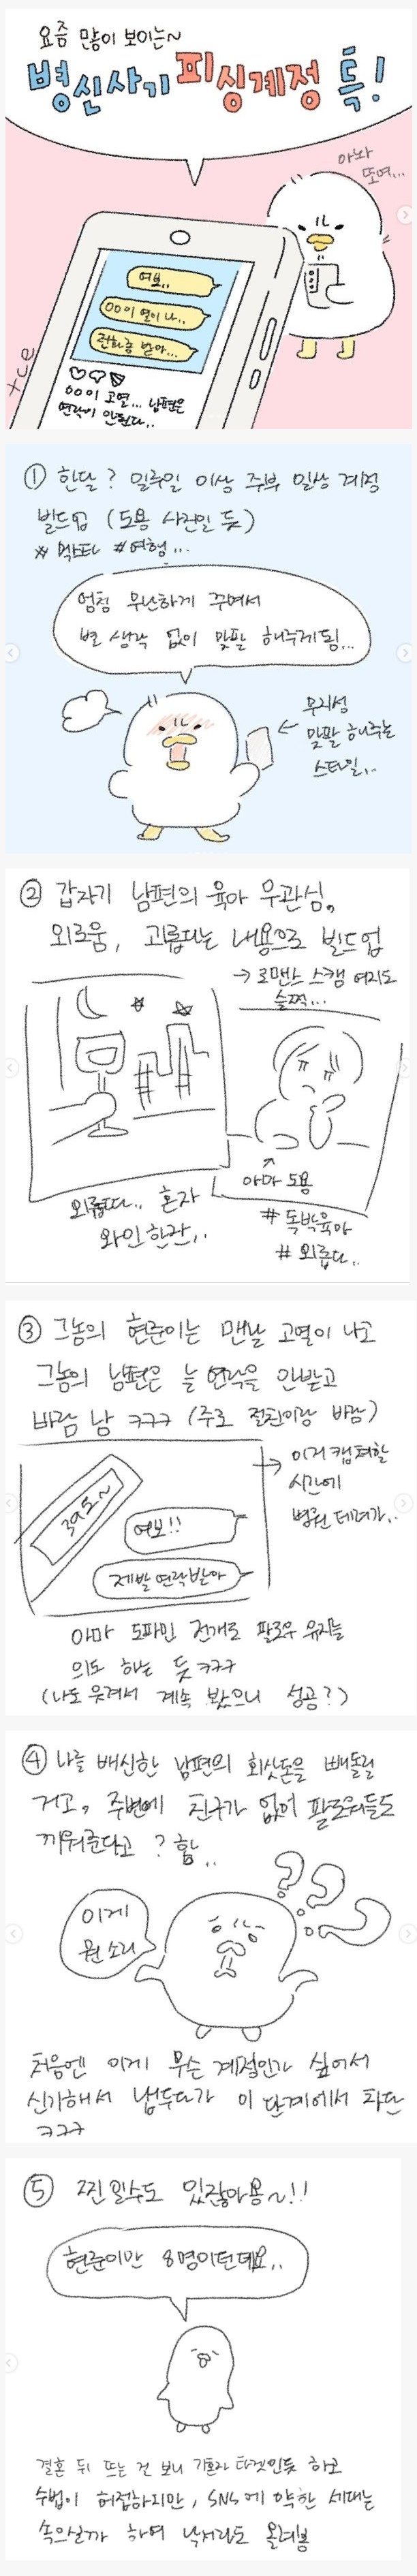 요즘 많이 보이는~
병신사기 피싱계정 특!
아놔
또여...
여보..
00이 열이 나..
전화좀 받아...
00이 고열... 남편은
연락이 안된다..
① 한달? 일주일 이상 주부 일상 계정
빌드업 (도용 사진일 듯)
#먹스타 #여행...
엄청 무난하게 꾸며서
별 생각 없이 맞팔 해주게됨...
무지성
맞팔 해주는
스타일..
② 갑자기 남편의 육아 무관심,
외로움, 괴롭다는 내용으로 빌드업
→ 로맨스 스캠 여지도
슬쩍...
외롭따.. 혼자
와인한잔..
아마 도용
# 독박육아
# 외롭다..
③ 그놈의 현준이는 맨날 고열이 나고
그놈의 남편은 늘 연락을 안받고
바람 남 ㅋㅋㅋ (주로 절친이랑 바람)
39.5~
여보!!
제발 연락받아
→ 이거 캡쳐할
시간에
병원 데려가..
아마 도파민 전개로 팔로우 유지를
의도 하는 듯 ㅋㅋㅋ
(나도 웃겨서 계속 봤으니 성공?)
④ 나를 배신한 남편의 회삿돈을 빼돌릴
거고, 주변에 친구가 없어 팔로워들도
끼워준다고? 함..
이게
뭔 소리
???
처음엔 이게 무슨 계정인가 싶어서
신기해서 냅두다가 이 단계에서 차단
ㅋㅋㅋ
⑤ 찐일수도 있잖아용~!!
현준이만 8명이던데요..
결혼 뒤 뜨는 건 보니 기혼자 타겟인듯 하고
수법이 허접하지만, SNS에 약한 세대는
속으실까 하여 낙서라도 올려봄